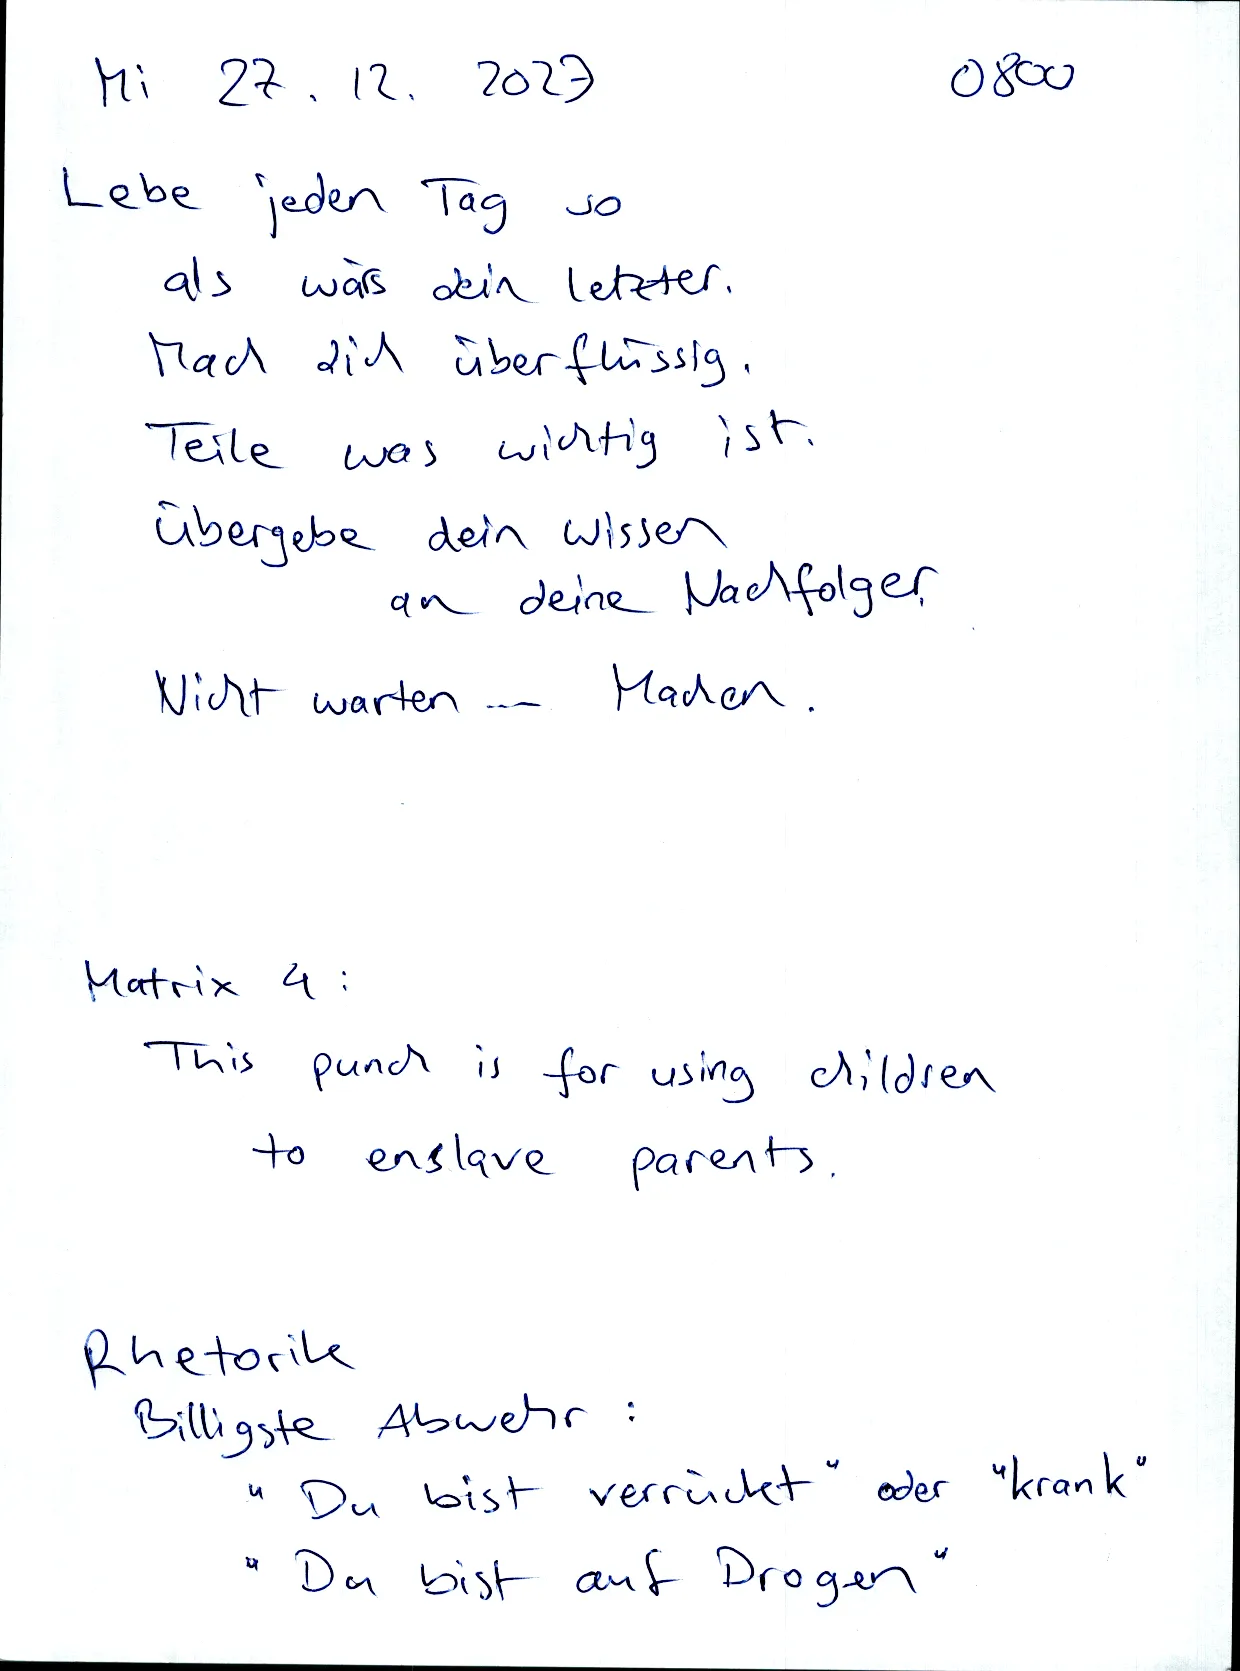 Mi 27. 12. 2023 0800
Lebe jeden Tag so
als wärs dein letzter.
Mach dich überflüssig.
Teile was wichtig ist.
Übergebe dein wissen
an deine Nachfolger.
Nicht warten -- Machen.
Matrix 4:
This punch is for using children
to enslave parents.
Rhetorik
Billigste Abwehr:
"Du bist verrückt" oder "krank"
"Du bist auf Drogen"